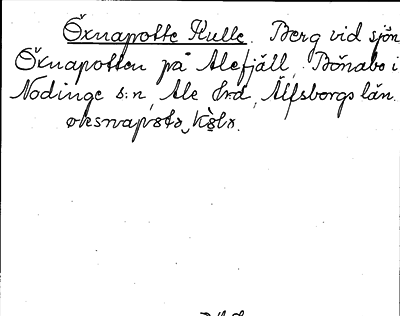 Öxnapotte Kulle. Berg vid sjön
Öxnapotten på Alefjäll, Bönabo i
Nödinge s:n, Ale hrd, Älfsborgs län.